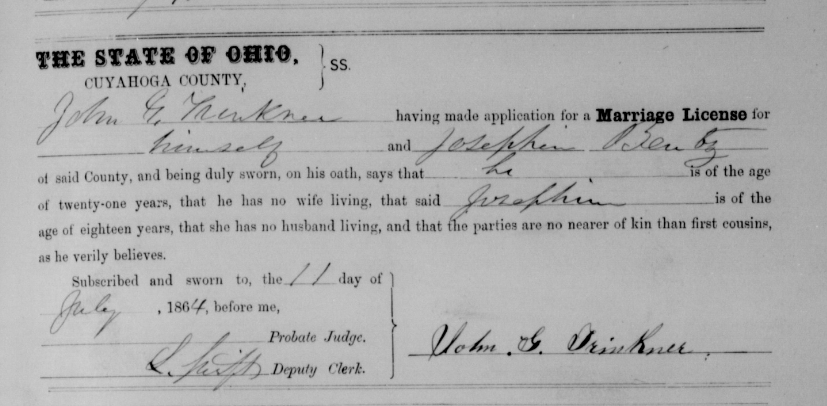 THE STATE OF OHIO, } SS.
CUYAHOGA COUNTY,
John G. Trinkner having made application for a Marriage License for
himself and Josephin Bentz
of said County, and being duly sworn, on his oath, says that he is of the age
of twenty-one years, that he has no wife living, that said Josephin is of the
age of eighteen years, that she has no husband living, and that the parties are no nearer of kin than first cousins,
as he verily believes.
Subscribed and sworn to, the 11 day of
July, 1864, before me,
Probate Judge.
John G. Trinkner.
Deputy Clerk.